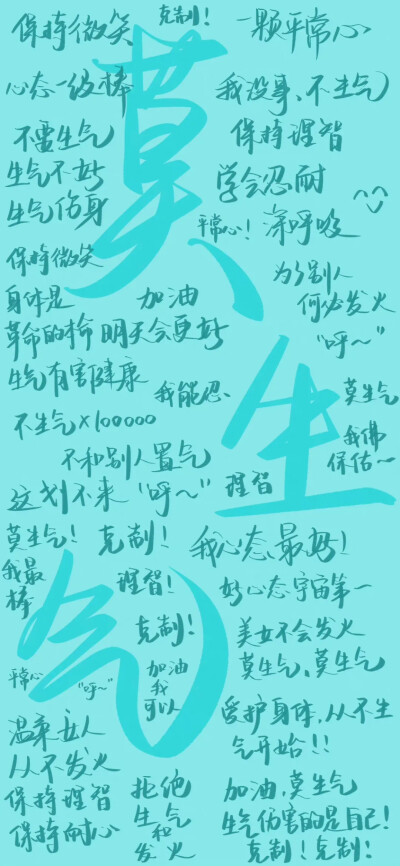 莫生气
保持微笑
克制!
一颗平常心
心态一级棒
我没事、不生气
不需生气
保持理智
生气不好
学会忍耐
生气伤身
平常心!
深呼吸
保持微笑
为了别人
何必发火
身体是
革命的本命
加油
明天会更好
“呼~”
生气有害健康
我能忍、
莫生气
不生气×100000
我佛
保佑~
不和别人置气
这划不来
“呼~”
理智
莫生气!
克制!
我心态最好!
我最
棒
理智!
好心态宇宙第一
克制!
美女不会发火
莫生气、莫生气
平常心
“呼~”
加油
我
可以
温柔女人
从不发火
爱护身体,从不生
气开始!!
保持理智
保持耐心
拒绝
生气
和
发火
加油,莫生气
生气伤害的是自己!
克制!克制!